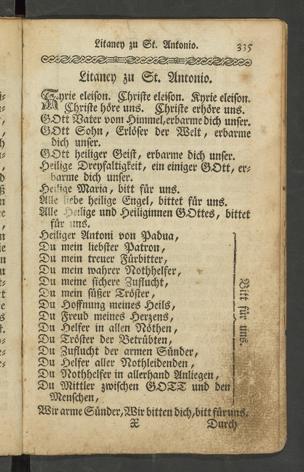 Litaney zu St. Antonio. 335
Litaney zu St. Antonio.
Kyrie eleison. Christe eleison. Kyrie eleison.
Christe höre uns. Christe erhöre uns.
GOtt Vater vom Himmel, erbarme dich unser.
GOtt Sohn, Erlöser der Welt, erbarme
dich unser.
GOtt heiliger Geist, erbarme dich unser.
Heilige Dreyfaltigkeit, ein einiger GOtt, er-
barme dich unser.
Heilige Maria, bitt für uns.
Alle liebe heilige Engel, bittet für uns.
Alle Heilige und Heiliginnen GOttes, bittet
für uns.
Heiliger Antoni von Padua,
Du mein liebster Patron,
Du mein treuer Fürbitter,
Du mein wahrer Nothhelfer,
Du meine sichere Zuflucht,
Du mein süßer Tröster,
Du Hoffnung meines Heils,
Du Freud meines Herzens,
Du Helfer in allen Nöthen,
Du Tröster der Betrübten,
Du Zuflucht der armen Sünder,
Du Helfer aller Nothleidenden,
Du Nothhelfer in allerhand Anliegen,
Du Mittler zwischen GOTT und den
Menschen,
Bitt für uns.
Wir arme Sünder, Wir bitten dich, bitt für uns.
X Durch